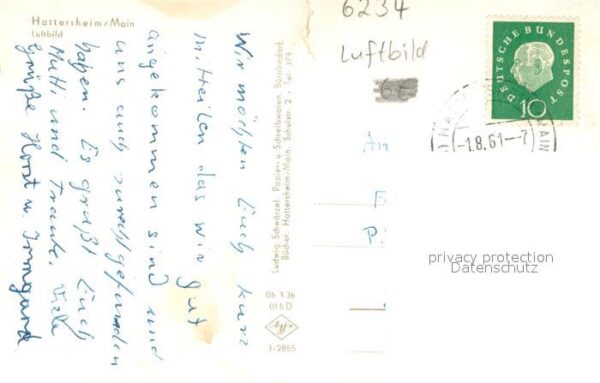 Hattersheim/Main
Luftbild
Wir möchten Euch kurz
mitteilen das wir gut
angekommen sind und
uns auch zurechtgefunden
haben. Es grüßt Euch
Mutti und Traute. Viele
Grüße Horst u. Irmgard
Ludwig Schwärzel, Papier- u. Schreibwaren, Bürobedarf,
Bücher, Hattersheim/Main, Schulstr. 2 · Tel. 379
06 7 36
015 D
1-2855
6234
Luftbild
DEUTSCHE BUNDESPOST
10
MAIN
-1.8.61--7
An
privacy protection
Datenschutz